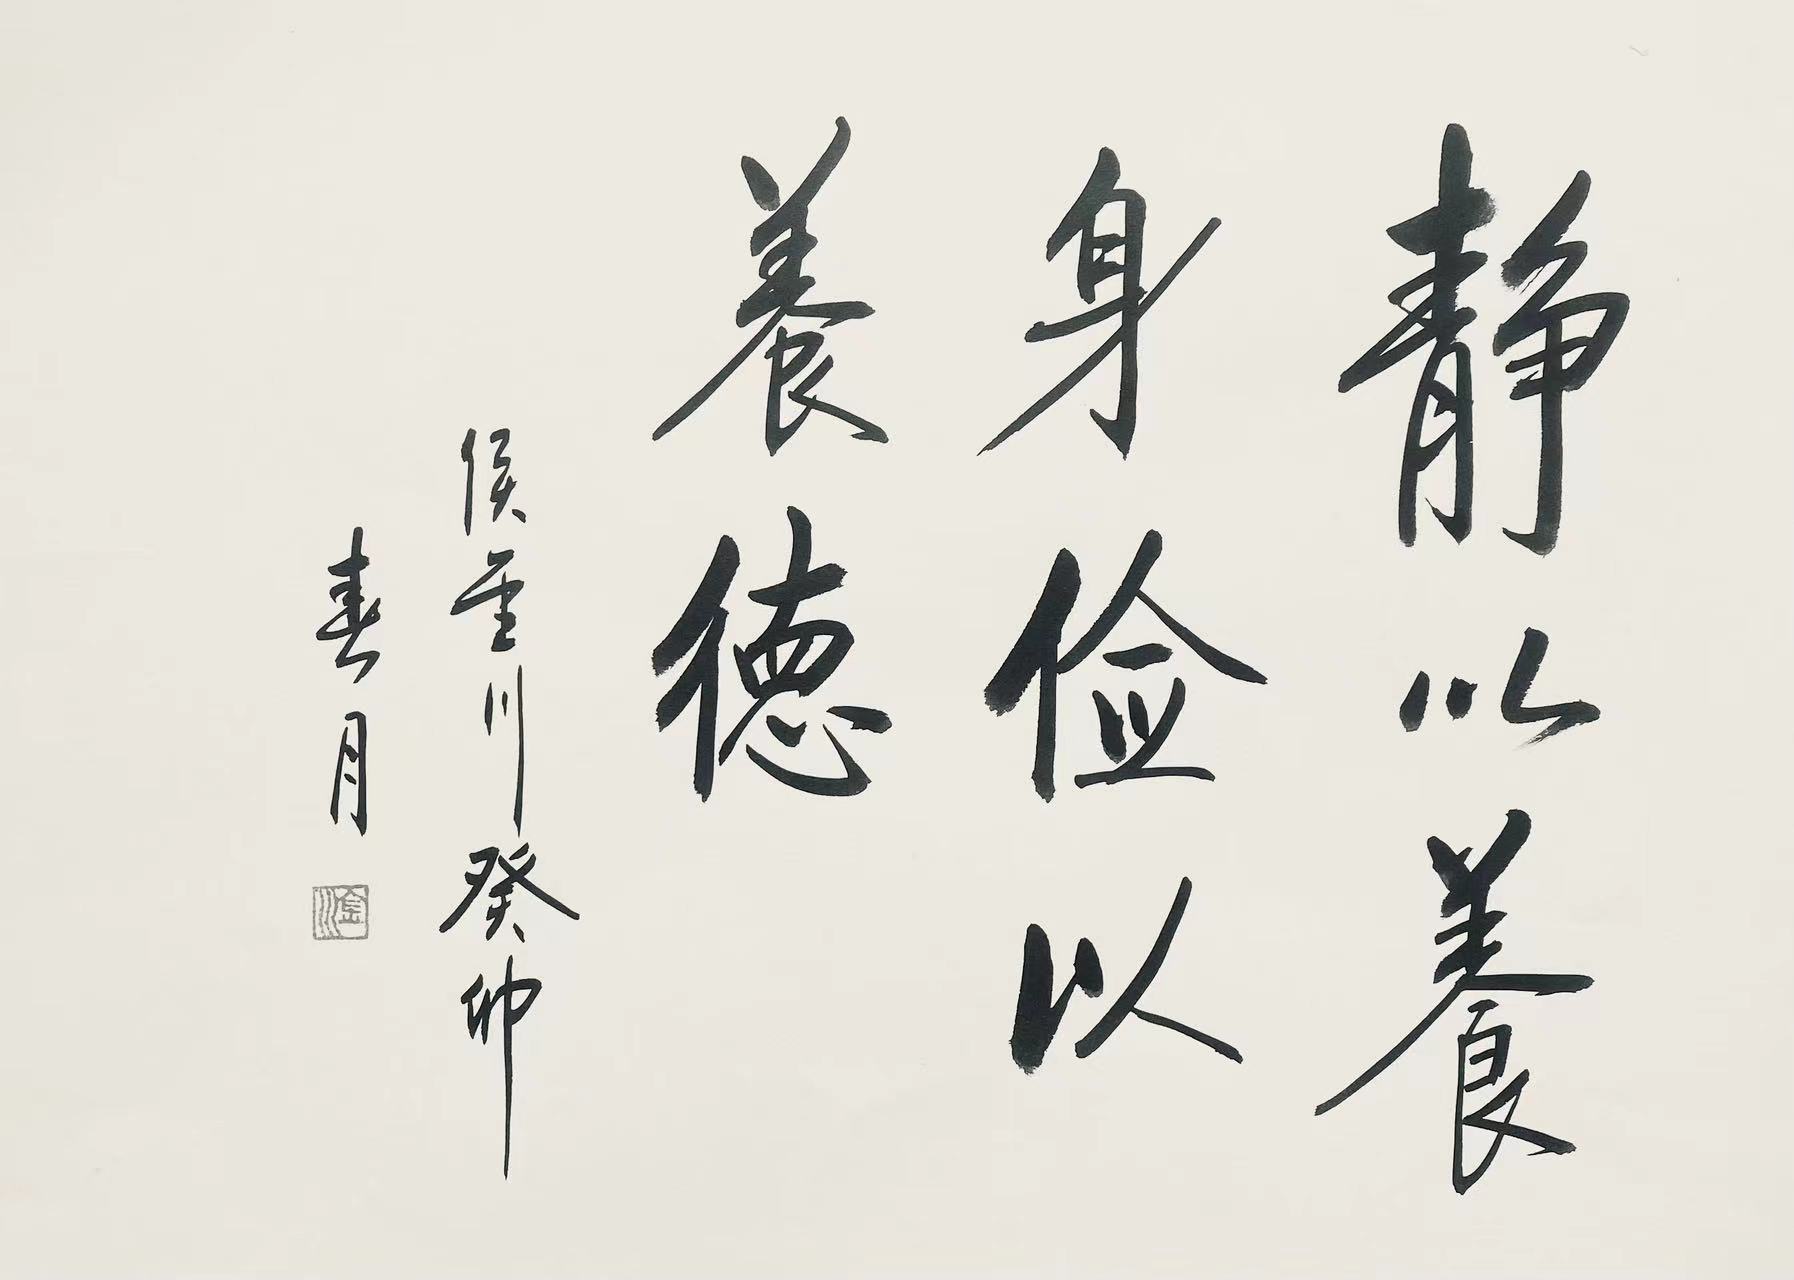 静以養
身俭以
養德
侯川癸卯
春月